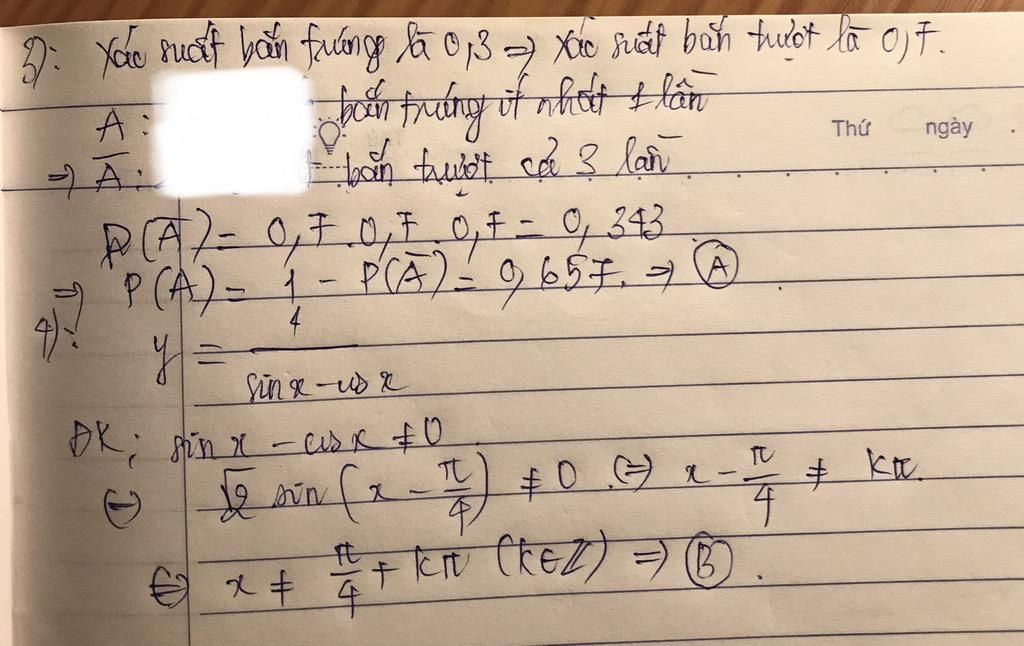 3): Xác suất bắn trúng là 0,3 => Xác suất bắn trượt là 0,7.
A: bắn trúng ít nhất 1 lần
Thứ ngày
=> A̅: bắn trượt cả 3 lần
P(A̅) = 0,7.0,7.0,7 = 0,343
=> P(A) = 1 - P(A̅) = 0,657. => Ⓐ
4): y = 1/(sin x - cos x)
ĐK: sin x - cos x ≠ 0
(=) √2 sin(x - π/4) ≠ 0 (=) x - π/4 ≠ kπ.
(=) x ≠ π/4 + kπ (k∈Z) => Ⓑ.